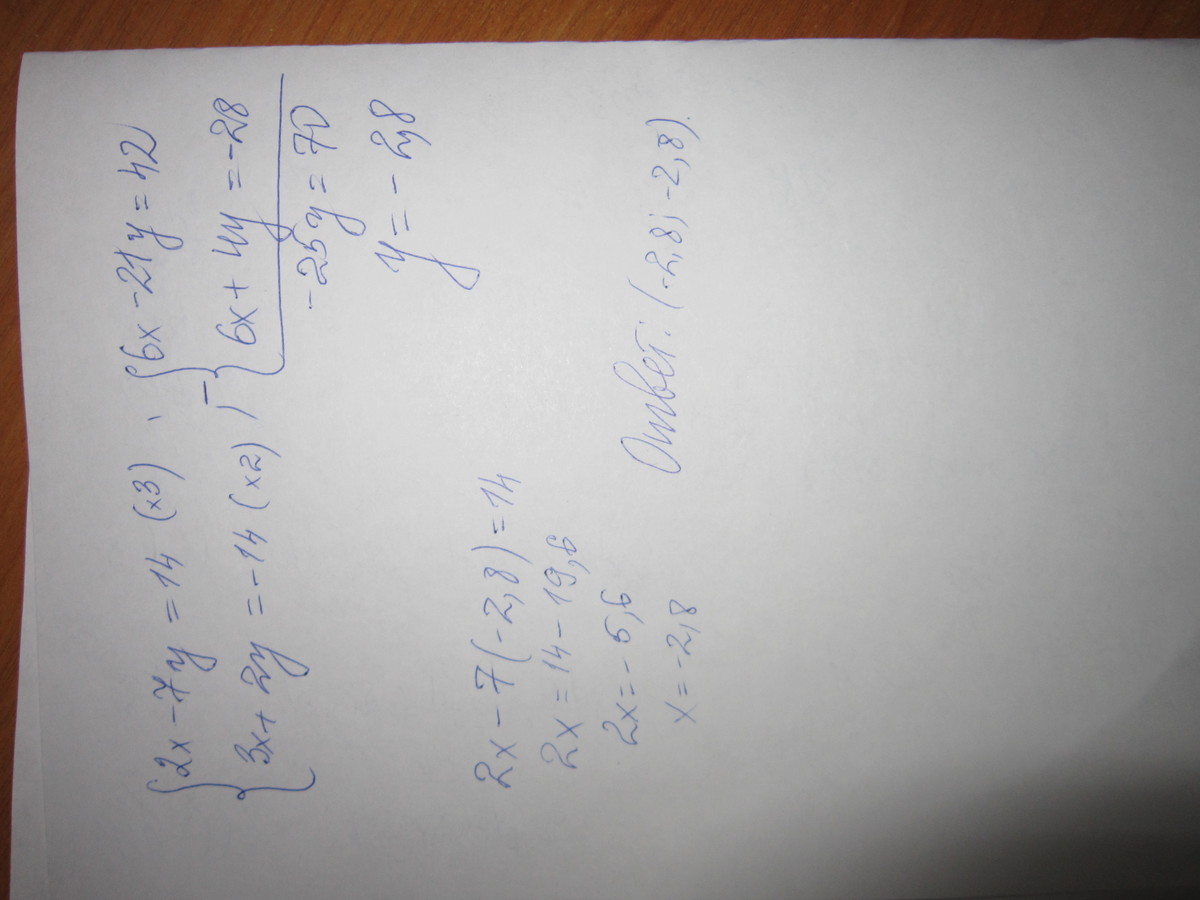 {2x - 7y = 14 (x3) , {6x - 21y = 42
{3x + 2y = -14 (x2) , - {6x + 4y = -28
-25y = 70
y = -2,8
2x - 7(-2,8) = 14
2x = 14 - 19,6
2x = -5,6
x = -2,8
Ответ: (-2,8; -2,8).